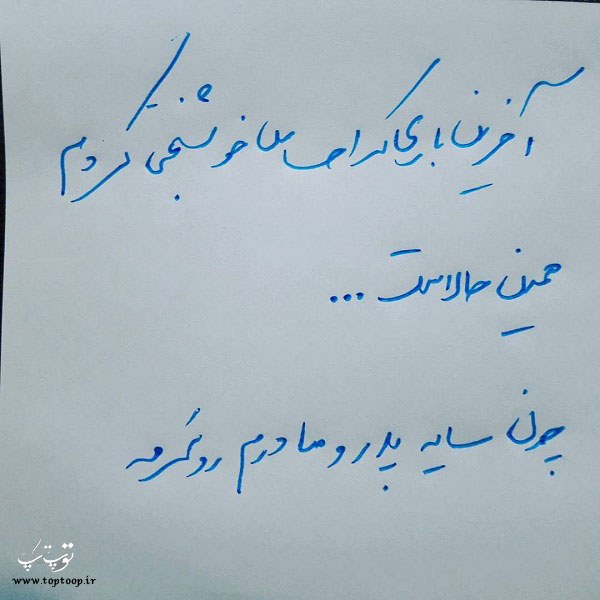 آخرین باری که احساس خوشبختی کردم
همین حالاست ...
چون سایه پدر و مادرم رو سرمه
توپ تاپ
www.toptoop.ir